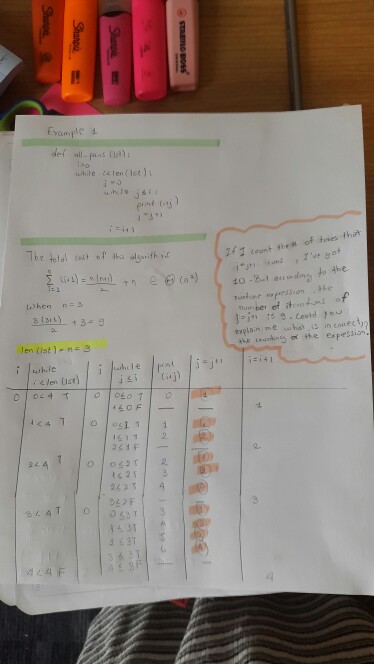 Sharpie
Sharpie
Sharpie
STABILO BOSS
Example 1
def all-pairs (lst):
i=0
while i<len(lst):
j=0
while j≤i:
print (i+j)
j=j+1
i=i+1
The total cost of the algorithm is
n
∑ (i+1) = n(n+1)/2 + n ∈ Θ (n²)
i=1
When n=3
3(3+1)/2 + 3 = 9
len(lst) = n = 3
If I count the # of times that
j=j+1 runs, I've got
10. But according to the
runtime expression, the
number of iterations of
j=j+1 is 9. Could you
explain me what is incorrect,
the counting or the expression.
i while i<len(lst) j while j≤i print (i+j) j=j+1 i=i+1
0 0<4 T 0 0≤0 T 0 1
1≤0 F — — 1
1<4 T 0 0≤1 T 1 1
1≤1 T 2 2
2≤1 F — — 2
2<4 T 0 0≤2 T 2
1≤2 T 3
2≤2 T 4
3≤2 F — 3
3<4 T 0 0≤3 T 3
1≤3 T
2≤3 T
3≤3 T 6
4≤3 F — — 4
4<4 F